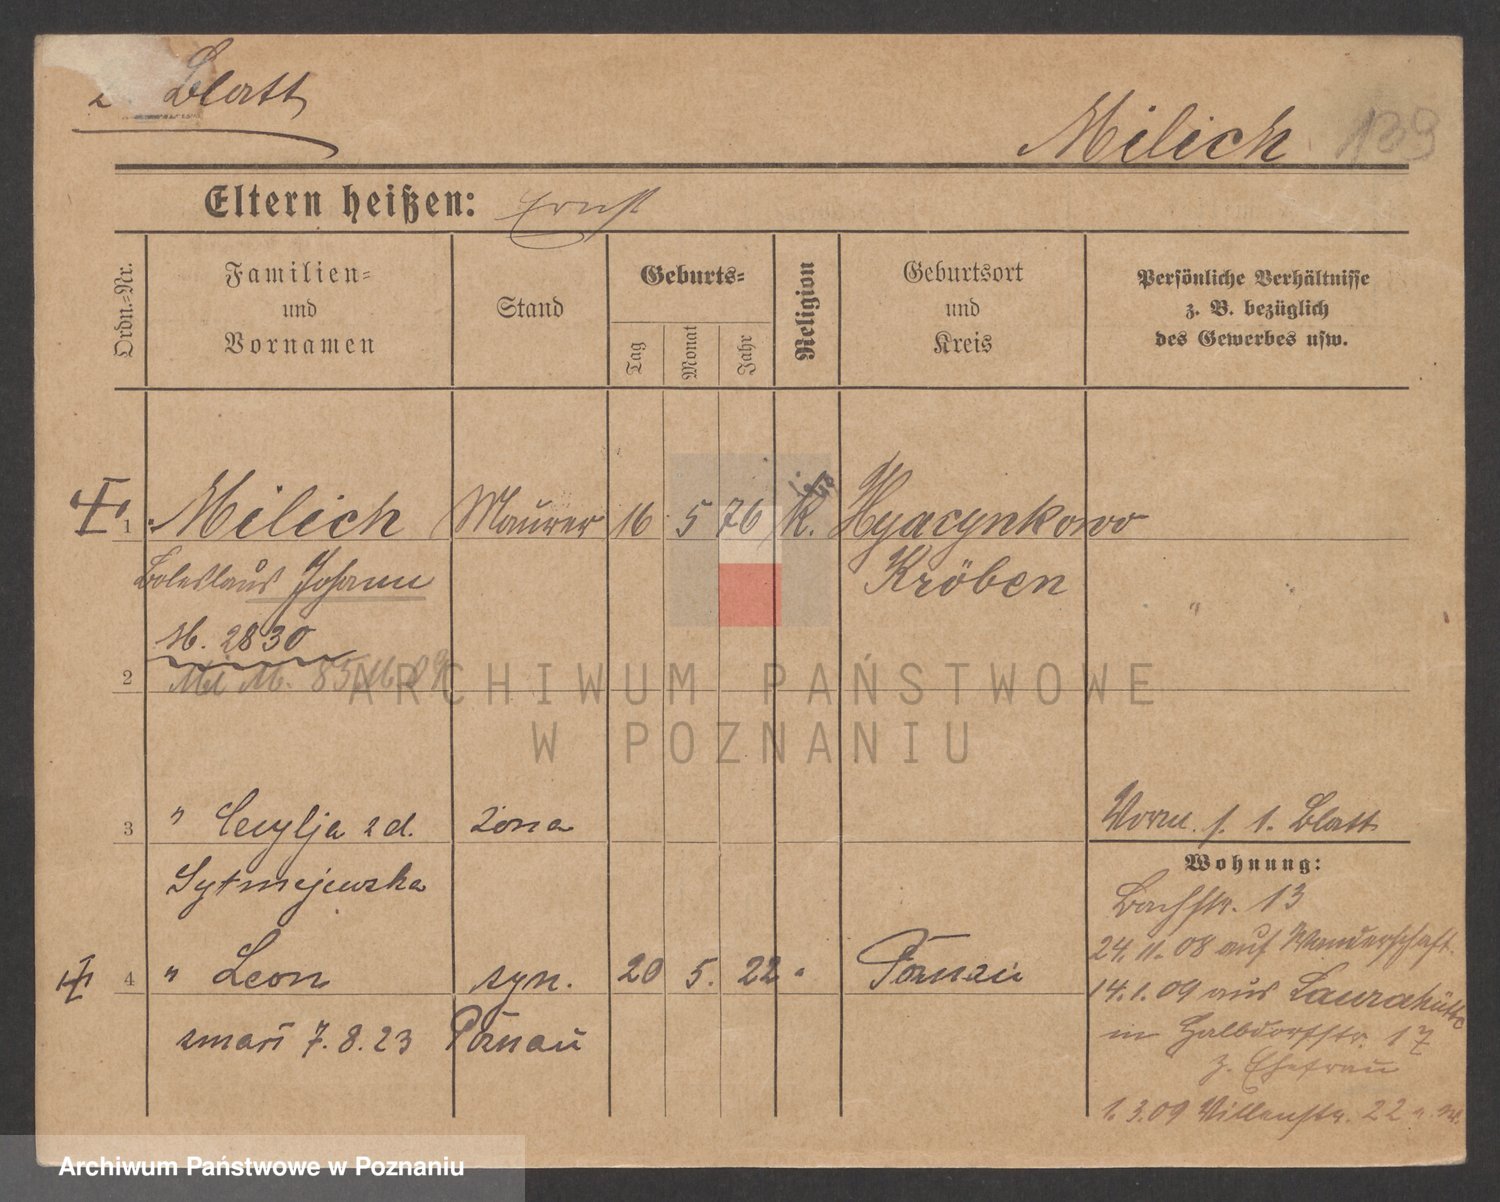 Blatt
Milich 139
Eltern heißen: Ernst
Ordn.-Nr.
Familien-
und
Vornamen
Stand
Geburts-
Tag
Monat
Jahr
Religion
Geburtsort
und
Kreis
Persönliche Verhältnisse
z. B. bezüglich
des Gewerbes usw.
1 Milich Maurer 16 5 76 K. Hyacynkowo
Boleslaus Johann Kröben
M. 2830
2
ARCHIWUM PAŃSTWOWE
W POZNANIU
3 " Cecylja zd. żona Vorm. s. 1. Blatt
Wohnung:
Sytmejewska
Bachstr. 13
24.11.08 auf Wanderschaft.
4 " Leon syn. 20 5. 22 " Poznań
14.1.09 aus Laurahütte
zmarł 7.8.23 Poznań
in Halbdorfstr. 17
z. Ehefrau
1.3.09 Villenstr. 22
Archiwum Państwowe w Poznaniu